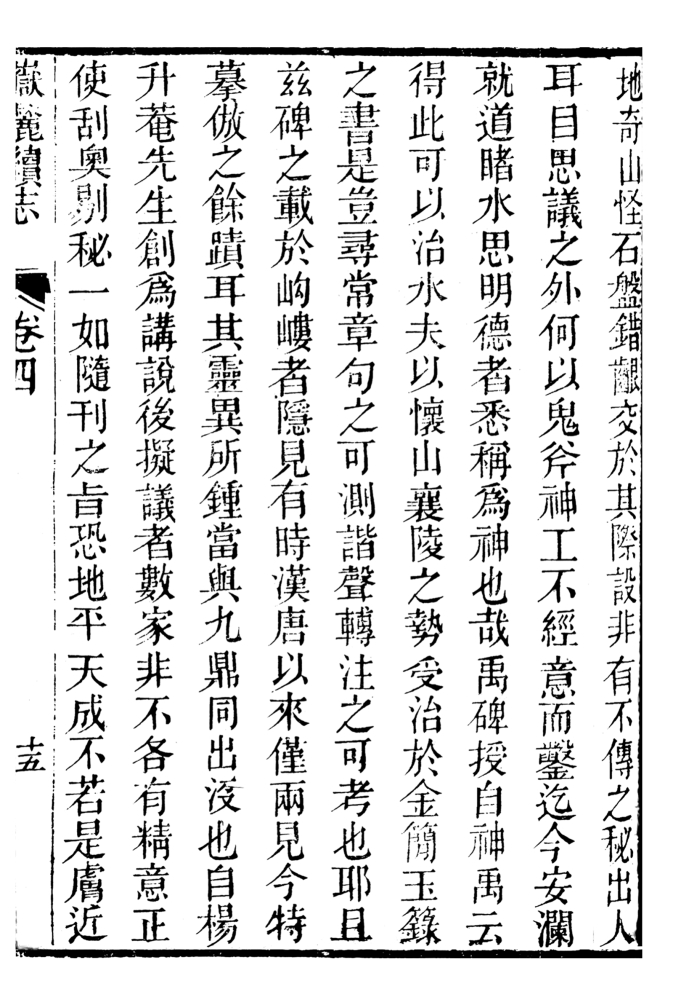 地奇山怪石盤錯齦交於其際設非有不傳之秘出人
耳目思議之外何以鬼斧神工不經意而鑿迄今安瀾
就道睹水思明德者悉稱爲神也哉禹碑授自神禹云
得此可以治水夫以懷山襄陵之勢受治於金簡玉籙
之書是豈尋常章句之可測諧聲轉注之可考也耶且
兹碑之載於岣嶁者隱見有時漢唐以來僅兩見今特
摹倣之餘蹟耳其靈異所鍾當與九鼎同出没也自楊
升菴先生創爲講說後擬議者數家非不各有精意正
使刮奥剔秘一如隨刊之旨恐地平天成不若是膚近
嶽麓續志 卷四 十五